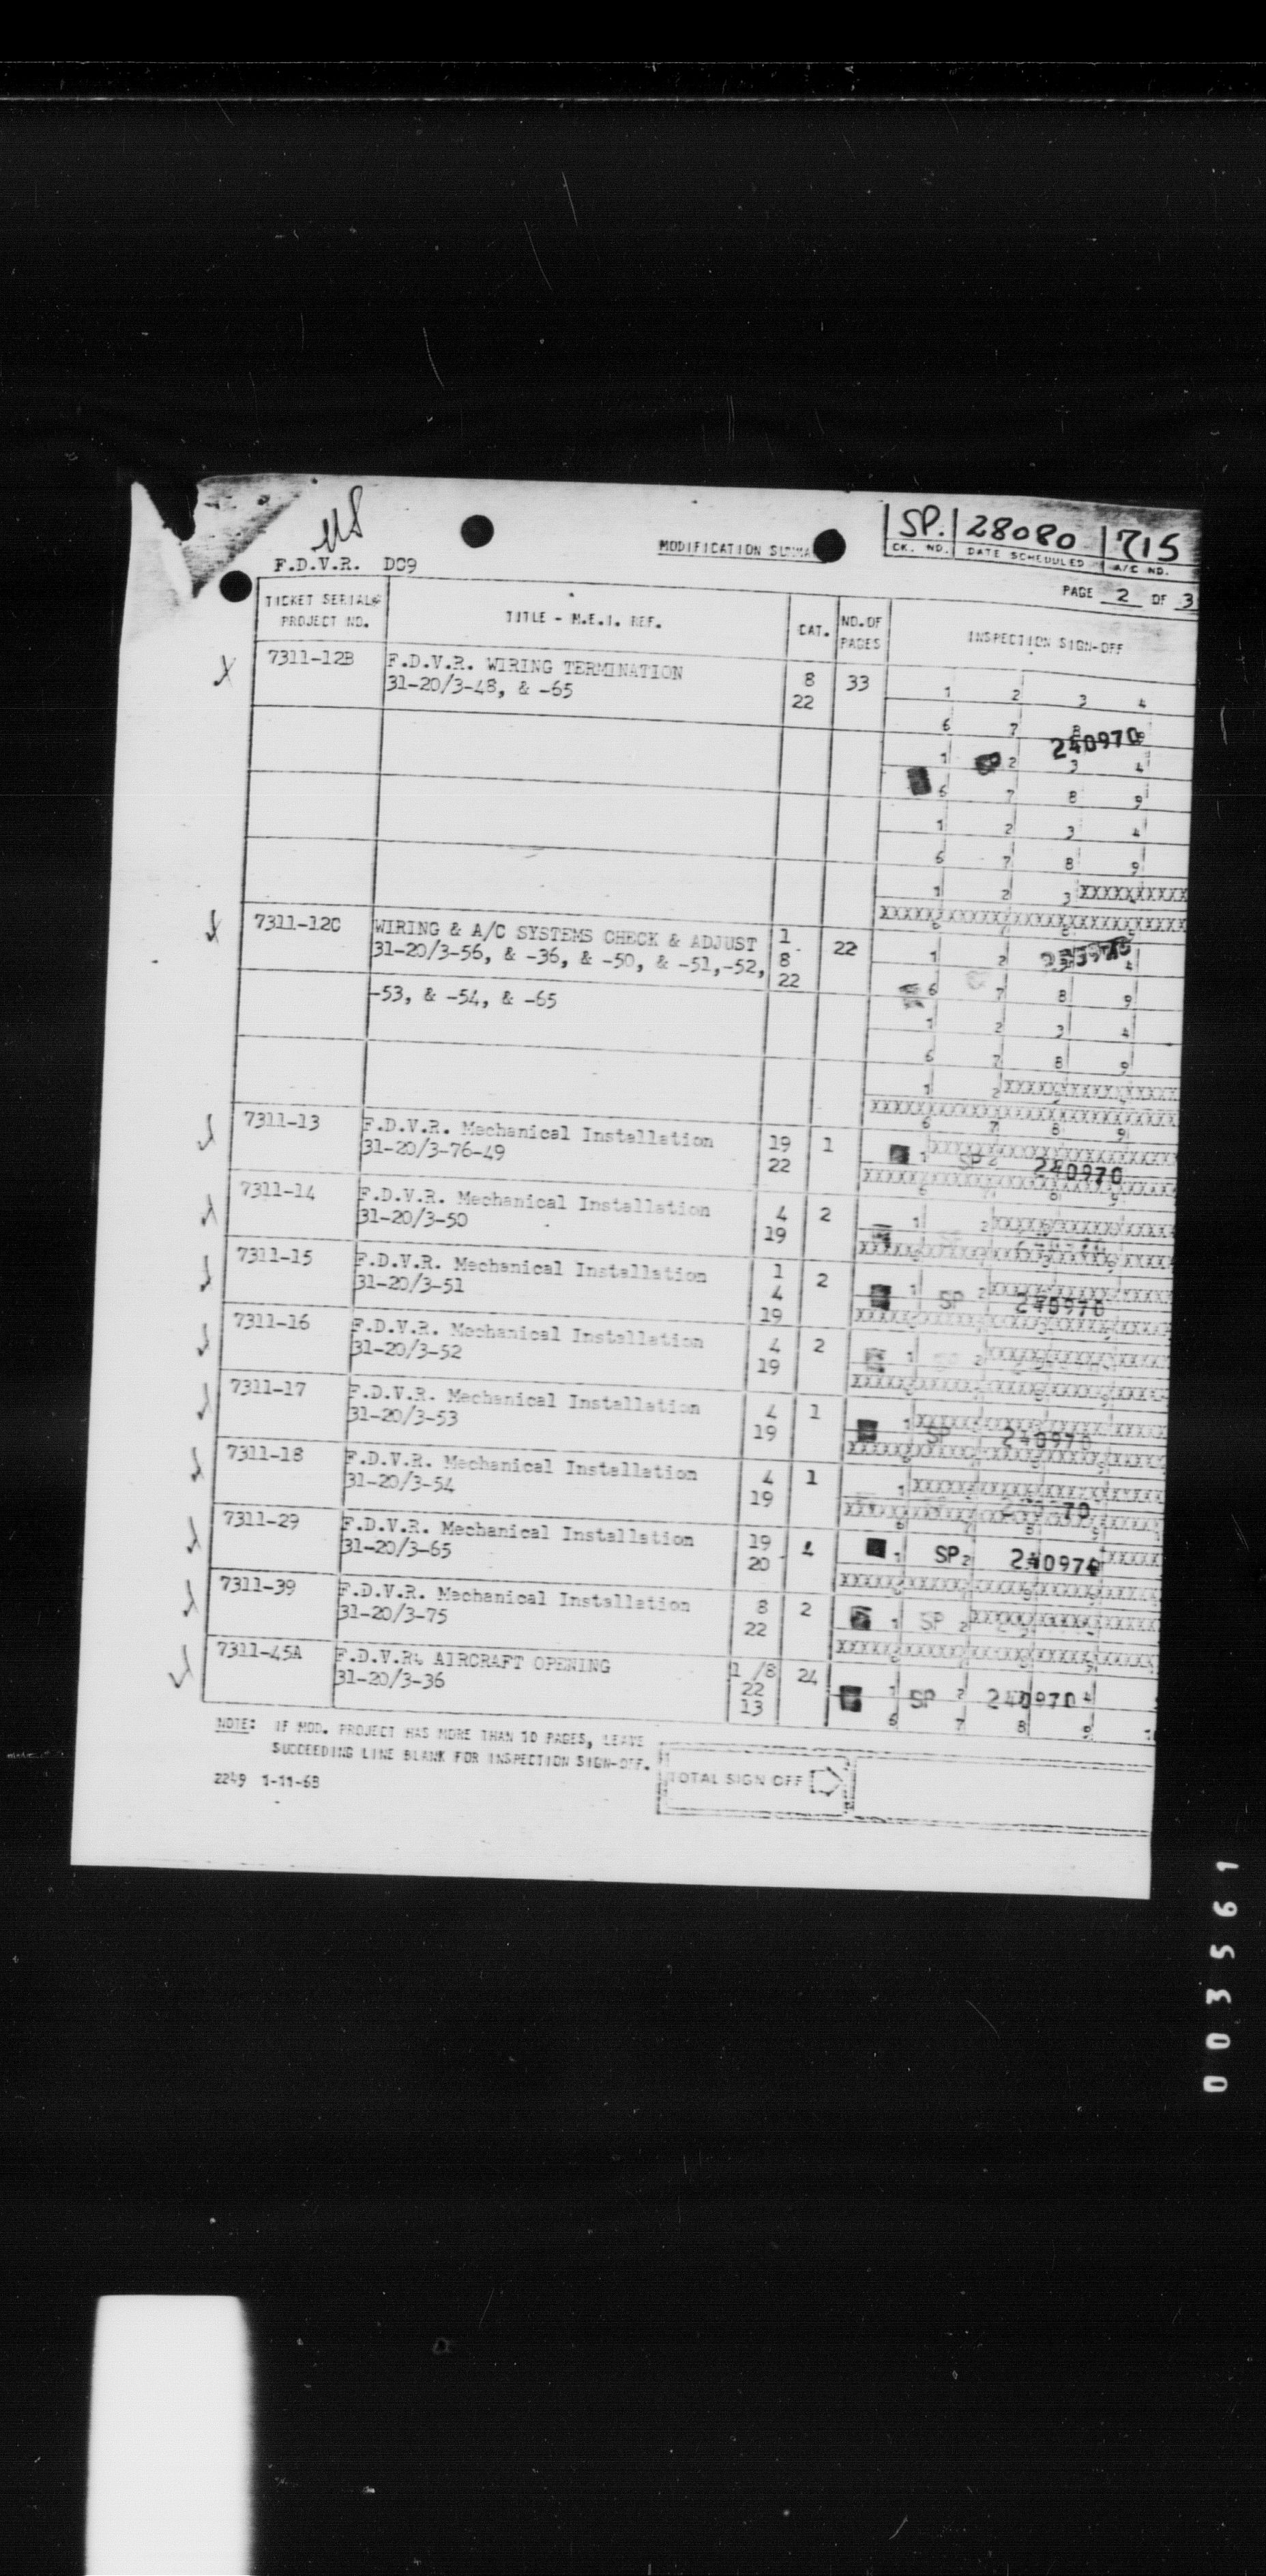 SP. 28080 715
CK. NO. DATE SCHEDULED A/C NO.
MODIFICATION
F.D.V.R. DC9
PAGE 2 OF 3
TICKET SERIAL& PROJECT NO. TITLE - M.E.I. REF. CAT. NO.OF PAGES INSPECTION SIGN-OFF
7311-12B F.D.V.R. WIRING TERMINATION 8 33
31-20/3-48, & -65 22
1 2 3 4
6 7 8 9
240970
1 2 3 4
6 7 8 9
1 2 3 4
6 7 8 9
1 2 3 XXXXXXXXXX
7311-12C WIRING & A/C SYSTEMS CHECK & ADJUST 1 22
31-20/3-56, & -36, & -50, & -51,-52, 8
22
-53, & -54, & -65
1 2 4
6 7 8 9
1 2 3 4
6 7 8 9
1 2
6 7 8 9
7311-13 F.D.V.R. Mechanical Installation 19 1
31-20/3-76-49 22
1 SP 2 240970
7311-14 F.D.V.R. Mechanical Installation 4 2
31-20/3-50 19
1 2
7311-15 F.D.V.R. Mechanical Installation 1 2
31-20/3-51 4
19
1 SP 2 240970
7311-16 F.D.V.R. Mechanical Installation 4 2
31-20/3-52 19
1 2
7311-17 F.D.V.R. Mechanical Installation 4 1
31-20/3-53 19
1 SP 240970
7311-18 F.D.V.R. Mechanical Installation 4 1
31-20/3-54 19
1 70
7311-29 F.D.V.R. Mechanical Installation 19
31-20/3-65 20
1 SP 2 240970
7311-39 F.D.V.R. Mechanical Installation 8 2
31-20/3-75 22
1 SP 2
7311-45A F.D.V.R. AIRCRAFT OPENING 1 /8 24
31-20/3-36 22
13
1 SP 2 240970 4
6 7 8 9
NOTE: IF MOD. PROJECT HAS MORE THAN 10 PAGES, LEAVE
SUCCEEDING LINE BLANK FOR INSPECTION SIGN-OFF.
TOTAL SIGN OFF
2249 1-11-68
003561